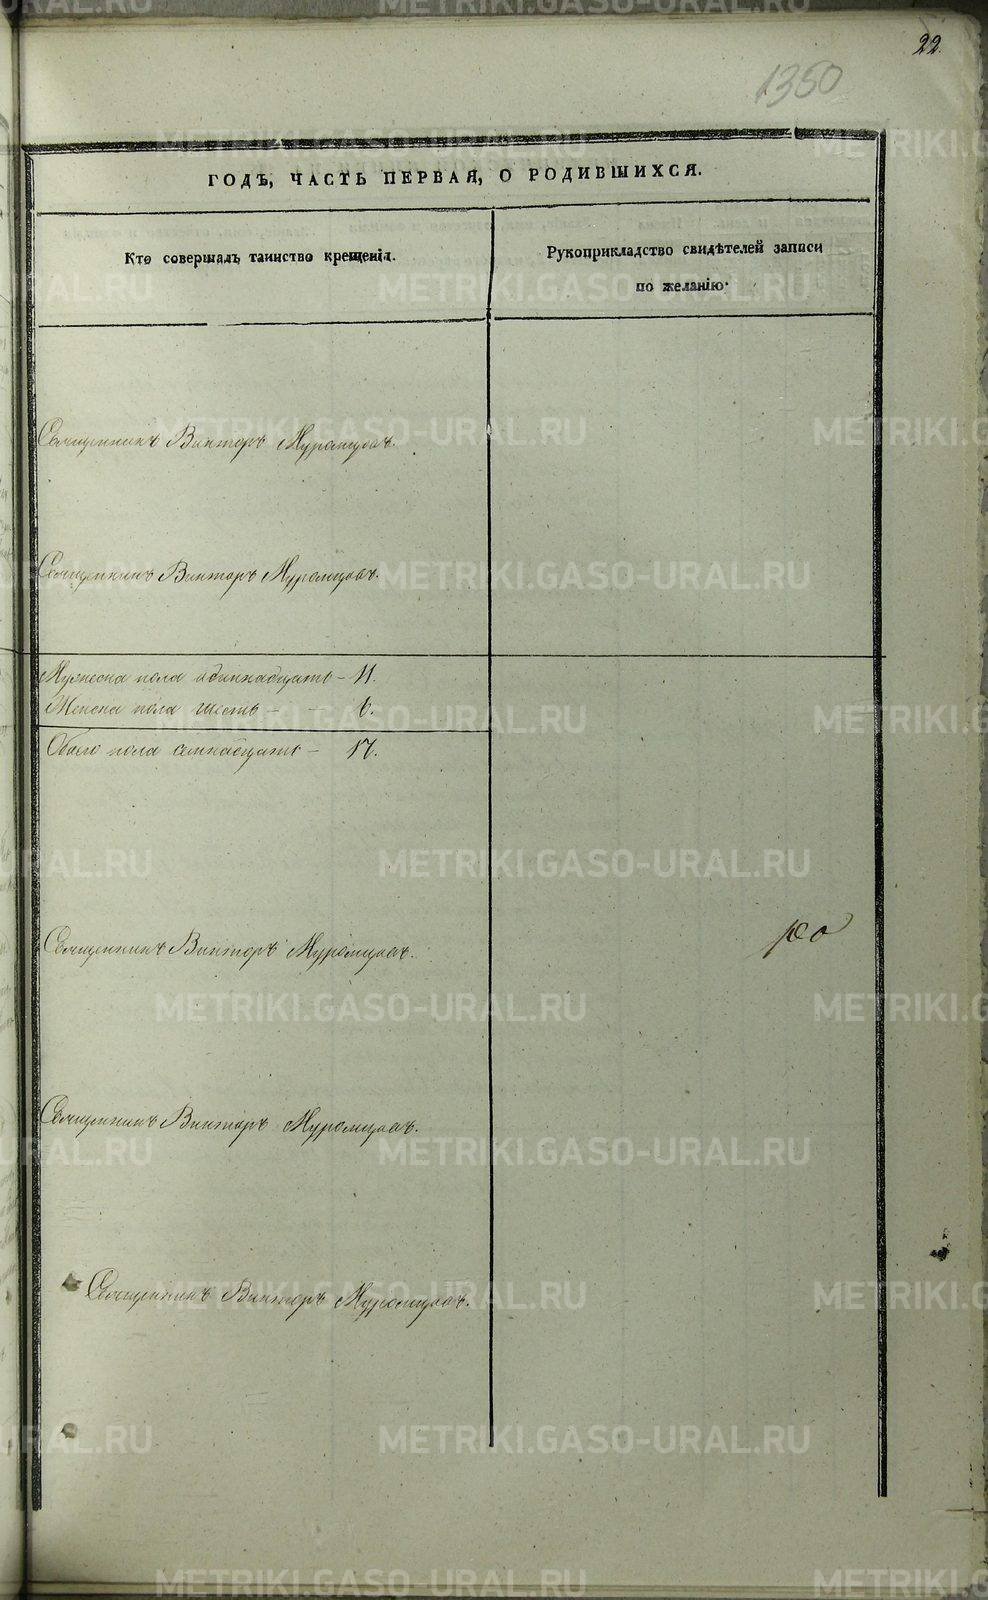 22.
1350
ГОДЪ, ЧАСТЬ ПЕРВАЯ, О РОДИВШИХСЯ.
Кто совершалъ таинство крещенія.
Рукоприкладство свидѣтелей записи
по желанію.
Священникъ Викторъ Муромцовъ.
Священникъ Викторъ Муромцовъ.
Мужеска пола одиннадцать – 11.
Женска пола шесть – – 6.
Обоего пола семнадцать – 17.
Священникъ Викторъ Муромцовъ.
Священникъ Викторъ Муромцовъ.
Священникъ Викторъ Муромцовъ.
METRIKI.GASO-URAL.RU